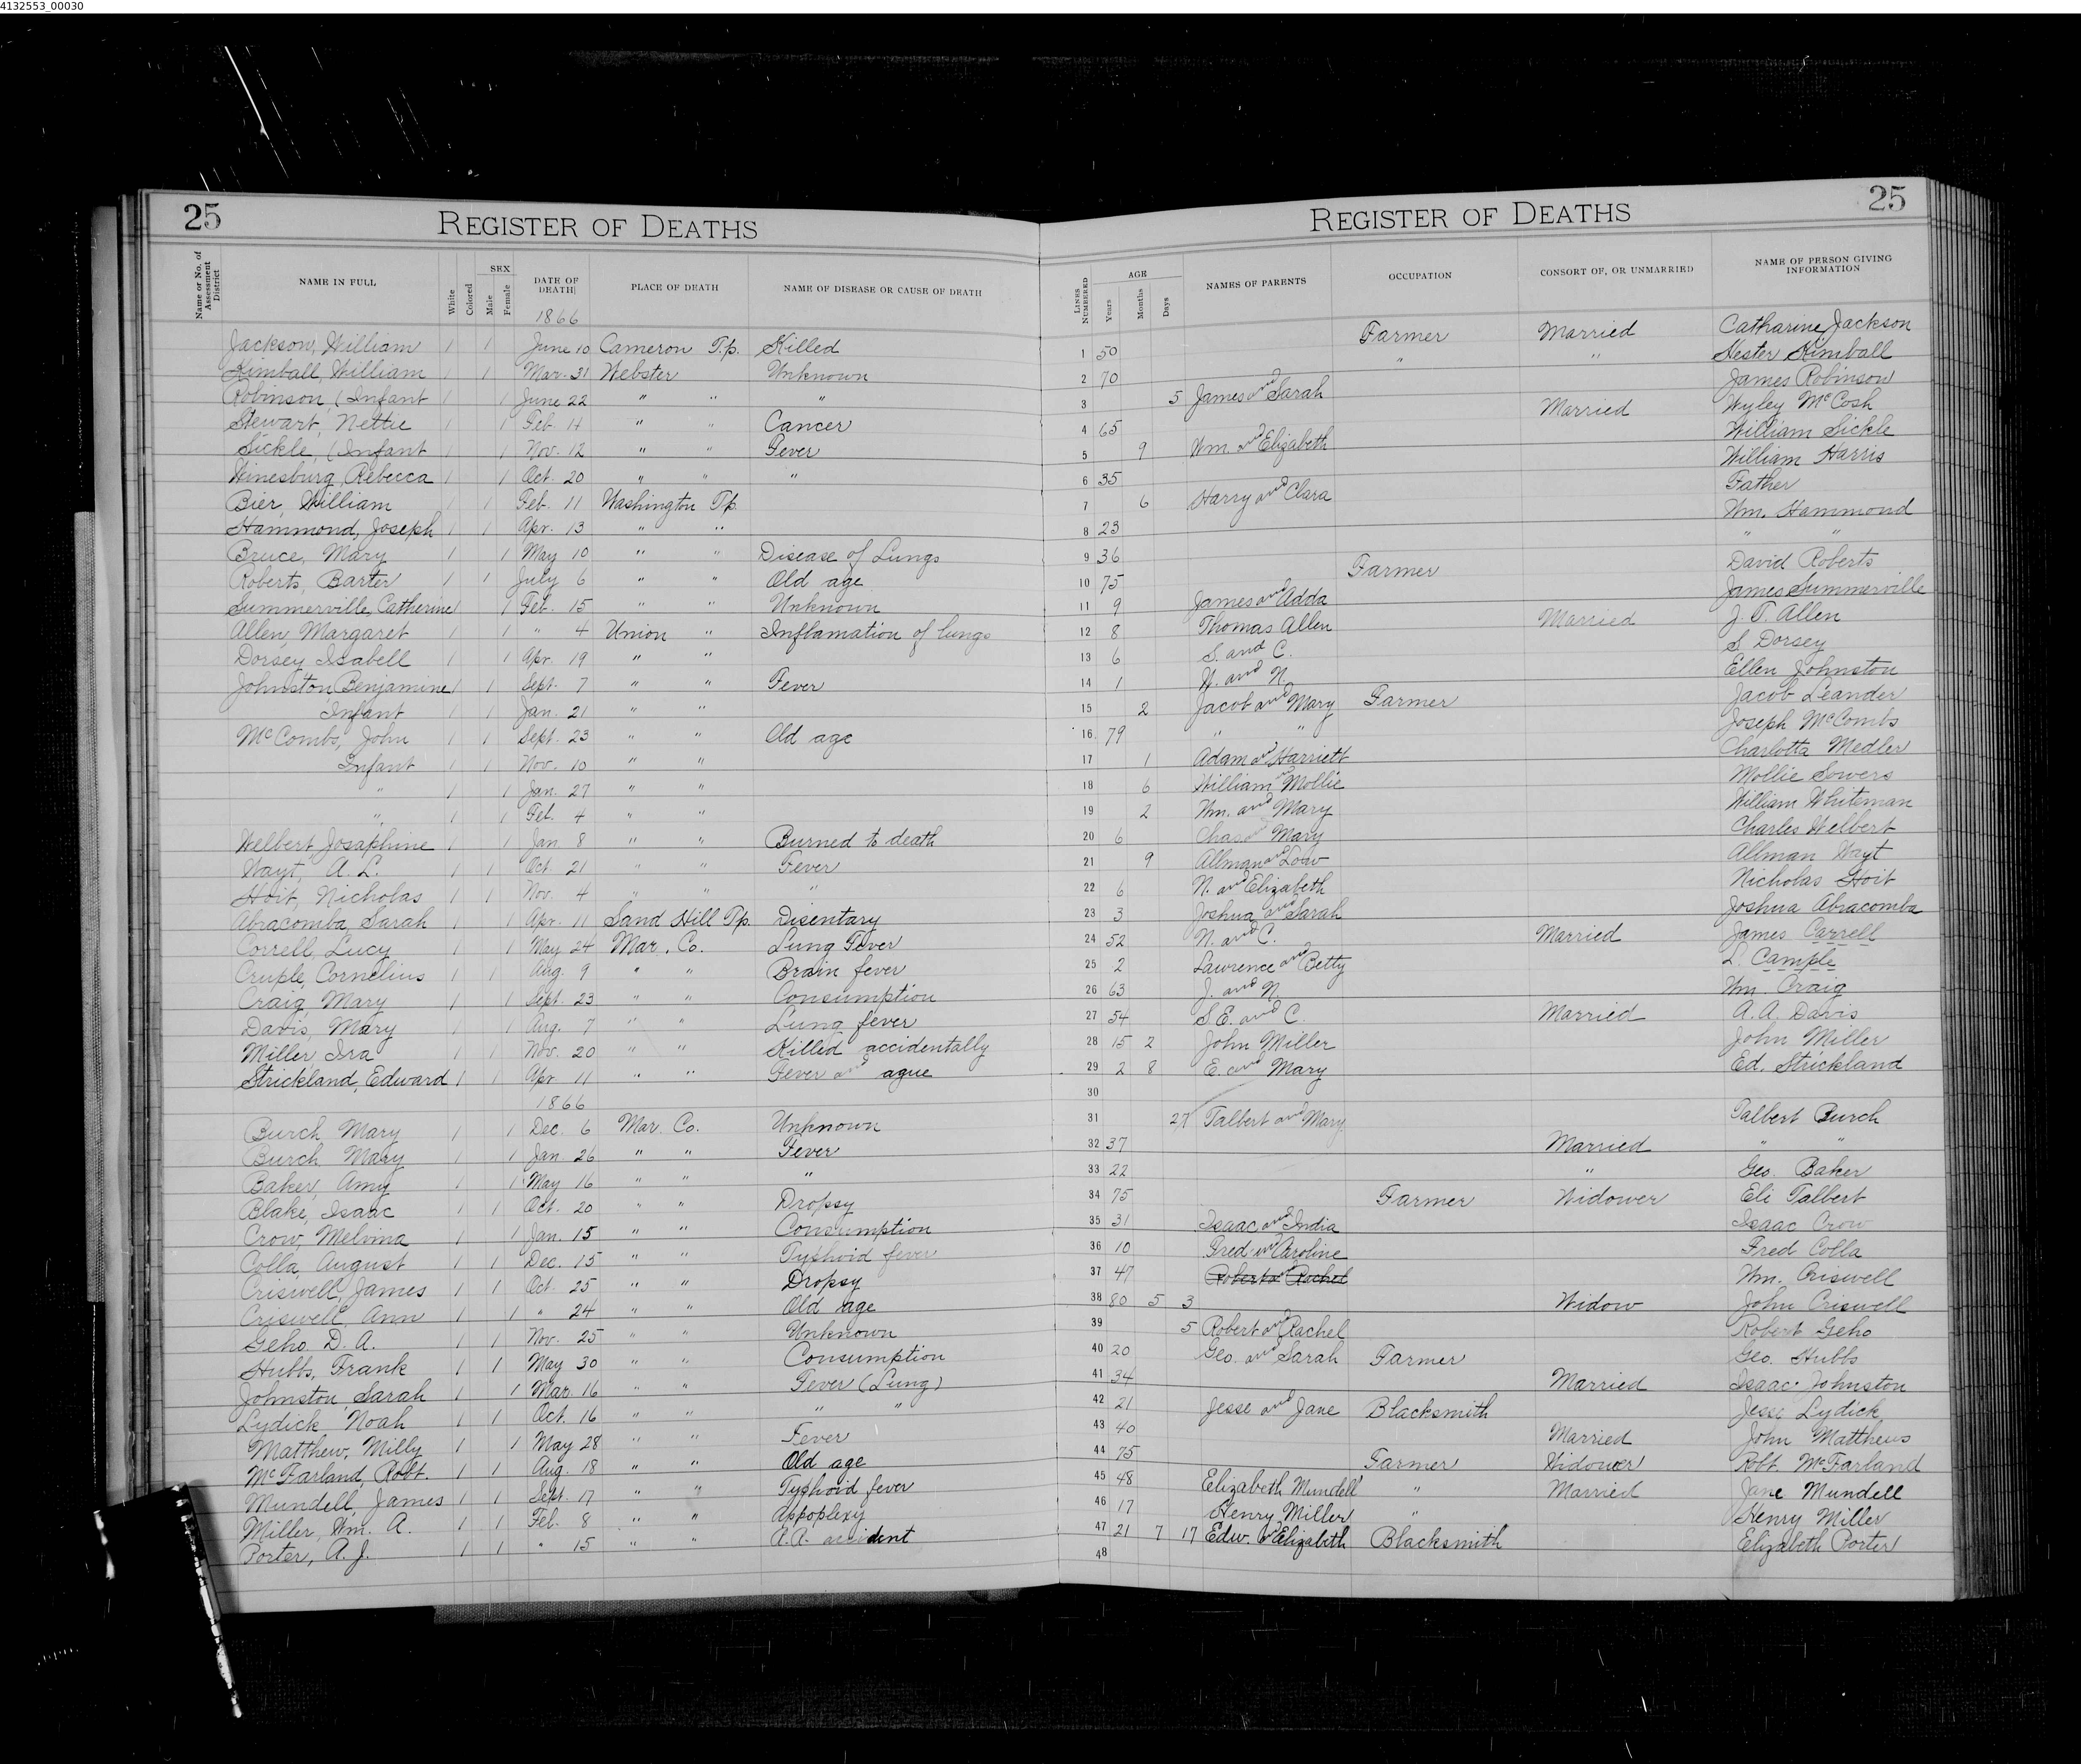 4132553_00030
25 REGISTER OF DEATHS
Name or No. of Assessment District NAME IN FULL White Colored SEX Male Female DATE OF DEATH PLACE OF DEATH NAME OF DISEASE OR CAUSE OF DEATH
1866
Jackson, William 1 1 June 10 Cameron T.p. Killed
Kimball, William 1 1 Mar. 31 Webster Unknown
Robinson, (Infant 1 1 June 22 " " "
Stewart, Nettie 1 1 Feb. 14 " " Cancer
Sickle, (Infant 1 1 Nov. 12 " " Fever
Winesburg, Rebecca 1 1 Oct. 20 " " "
Bier, William 1 1 Feb. 11 Washington T.p.
Hammond, Joseph 1 1 Apr. 13 " "
Bruce, Mary 1 1 May 10 " " Disease of Lungs
Roberts, Barter 1 1 July 6 " " Old age
Summerville, Catherine 1 1 Feb. 15 " " Unknown
Allen, Margaret 1 1 " 4 Union " Inflamation of lungs
Dorsey Isabell 1 1 Apr. 19 " "
Johnston Benjamine 1 1 Sept. 7 " " Fever
Infant 1 1 Jan. 21 " "
McCombs, John 1 1 Sept. 23 " " Old age
Infant 1 1 Nov. 10 " "
" 1 1 Jan. 27 " "
" 1 1 Feb. 4 " "
Welbert, Josaphine 1 1 Jan 8 " " Burned to death
Wayt, A. L. 1 1 Oct. 21 " " Fever
Hoit, Nicholas 1 1 Nov. 4 " " "
Abracomba, Sarah 1 1 Apr. 11 Sand Hill T.p. Disentary
Correll, Lucy 1 1 May 24 Mar. Co. Lung Fever
Cruple, Cornelius 1 1 Aug. 9 " " Brain fever
Craig, Mary 1 1 Sept. 23 " " Consumption
Davis, Mary 1 1 Aug. 7 " " Lung fever
Miller Ira 1 1 Nov. 20 " " Killed accidentally
Strickland, Edward 1 1 Apr 11 " " Fever and ague
1866
Burch Mary 1 1 Dec. 6 Mar. Co. Unknown
Burch Mary 1 1 Jan. 26 " " Fever
Baker, Amy 1 1 May 16 " " "
Blake, Isaac 1 1 Oct. 20 " " Dropsy
Crow, Melvina 1 1 Jan. 15 " " Consumption
Colla, August 1 1 Dec. 15 " " Typhoid fever
Criswell, James 1 1 Oct. 25 " " Dropsy
Criswell, Ann 1 1 " 24 " " Old age
Geho, D. A. 1 1 Nov. 25 " " Unknown
Hubbs, Frank 1 1 May 30 " " Consumption
Johnston, Sarah 1 1 Mar. 16 " " Fever (Lung)
Lydick Noah 1 1 Oct. 16 " " " "
Matthew, Milly 1 1 May 28 " " Fever
McFarland, Robt. 1 1 Aug. 18 " " Old age
Mundell, James 1 1 Sept. 17 " " Typhoid fever
Miller, Wm. A. 1 1 Feb. 8 " " Appoplexy
Porter, A. J. 1 1 " 15 " " accident
REGISTER OF DEATHS 25
LINES NUMBERED AGE Years Months Days NAMES OF PARENTS OCCUPATION CONSORT OF, OR UNMARRIED NAME OF PERSON GIVING INFORMATION
1 50 Farmer Married Catharine Jackson
2 70 " " Hester Kimball
3 5 James and Sarah James Robinson
4 65 Married Wyley McCosh
5 9 Wm. and Elizabeth William Sickle
6 35 William Harris
7 6 Harry and Clara Father
8 23 Wm. Hammond
9 36 " "
10 75 Farmer David Roberts
11 9 James and Adda James Summerville
12 8 Thomas Allen Married J. T. Allen
13 6 S. and C. S Dorsey
14 1 N. and N. Ellen Johnston
15 2 Jacob and Mary Farmer Jacob Leander
16 79 " " Joseph McCombs
17 1 Adam and Harriett Charlotta Medler
18 6 William and Mollie Mollie Sowers
19 2 Wm. and Mary William Whiteman
20 6 Chas. and Mary Charles Welbert
21 9 Allman and Low Allman Wayt
22 6 N. and Elizabeth Nicholas Hoit
23 3 Joshua and Sarah Joshua Abracomba
24 52 N. and C. Married James Carrell
25 2 Lawrence and Betty L. Cample
26 63 J. and N. Wm. Craig
27 54 S. E. and C. Married A. A. Davis
28 15 2 John Miller John Miller
29 2 8 E. and Mary Ed. Strickland
30
31 27 Talbert and Mary Talbert Burch
32 37 Married " "
33 22 " Geo. Baker
34 75 Farmer Widower Eli Talbert
35 31 Isaac and India Isaac Crow
36 10 Fred and Caroline Fred Colla
37 47 Robert and Rachel Wm. Criswell
38 80 5 3 Widow John Criswell
39 5 Robert and Rachel Robert Geho
40 20 Geo. and Sarah Farmer Geo. Hubbs
41 34 Married Isaac Johnston
42 21 Jesse and Jane Blacksmith Jesse Lydick
43 40 Married John Matthews
44 75 Farmer Widower Robt. McFarland
45 48 Elizabeth Mundell " Married Jane Mundell
46 17 Henry Miller " Henry Miller
47 21 7 17 Edw. & Elizabeth Blacksmith Elizabeth Porter
48